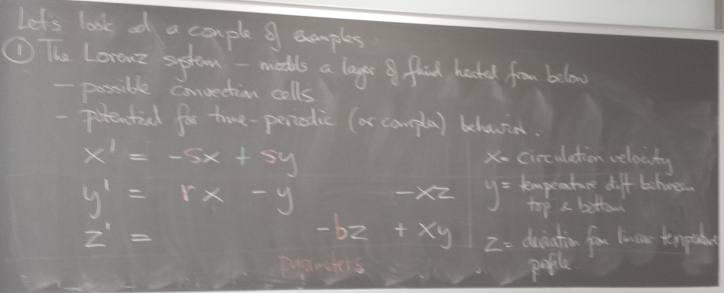 Let's look at a couple of examples.
① The Lorenz system – models a layer of fluid heated from below
– possible convection cells
– potential for time-periodic (or complex) behavior.
x' = -sx + sy
y' = rx - y - xz
z' = -bz + xy
parameters
x = circulation velocity
y = temperature diff between
top & bottom
z = deviation from linear temperature
profile.